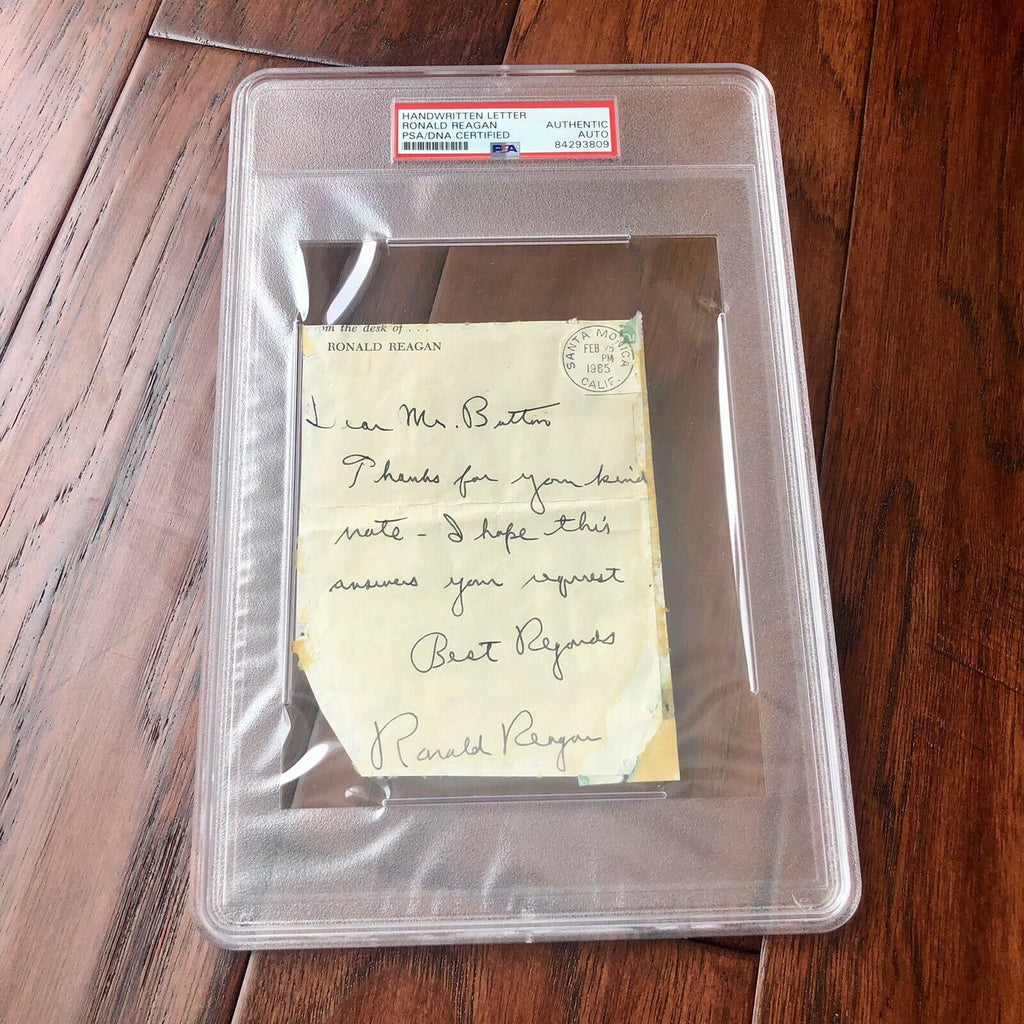 HANDWRITTEN LETTER
RONALD REAGAN AUTHENTIC
PSA/DNA CERTIFIED AUTO
PSA 84293809
om the desk of . . .
RONALD REAGAN
SANTA MONICA
FEB 25
PM
1965
CALIF.
Dear Mr. Button
Thanks for your kind
note - I hope this
answers your request
Best Regards
Ronald Reagan